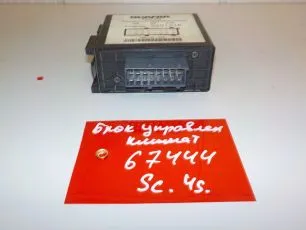 Блок управлен
климат
67444
Sc. 4s.